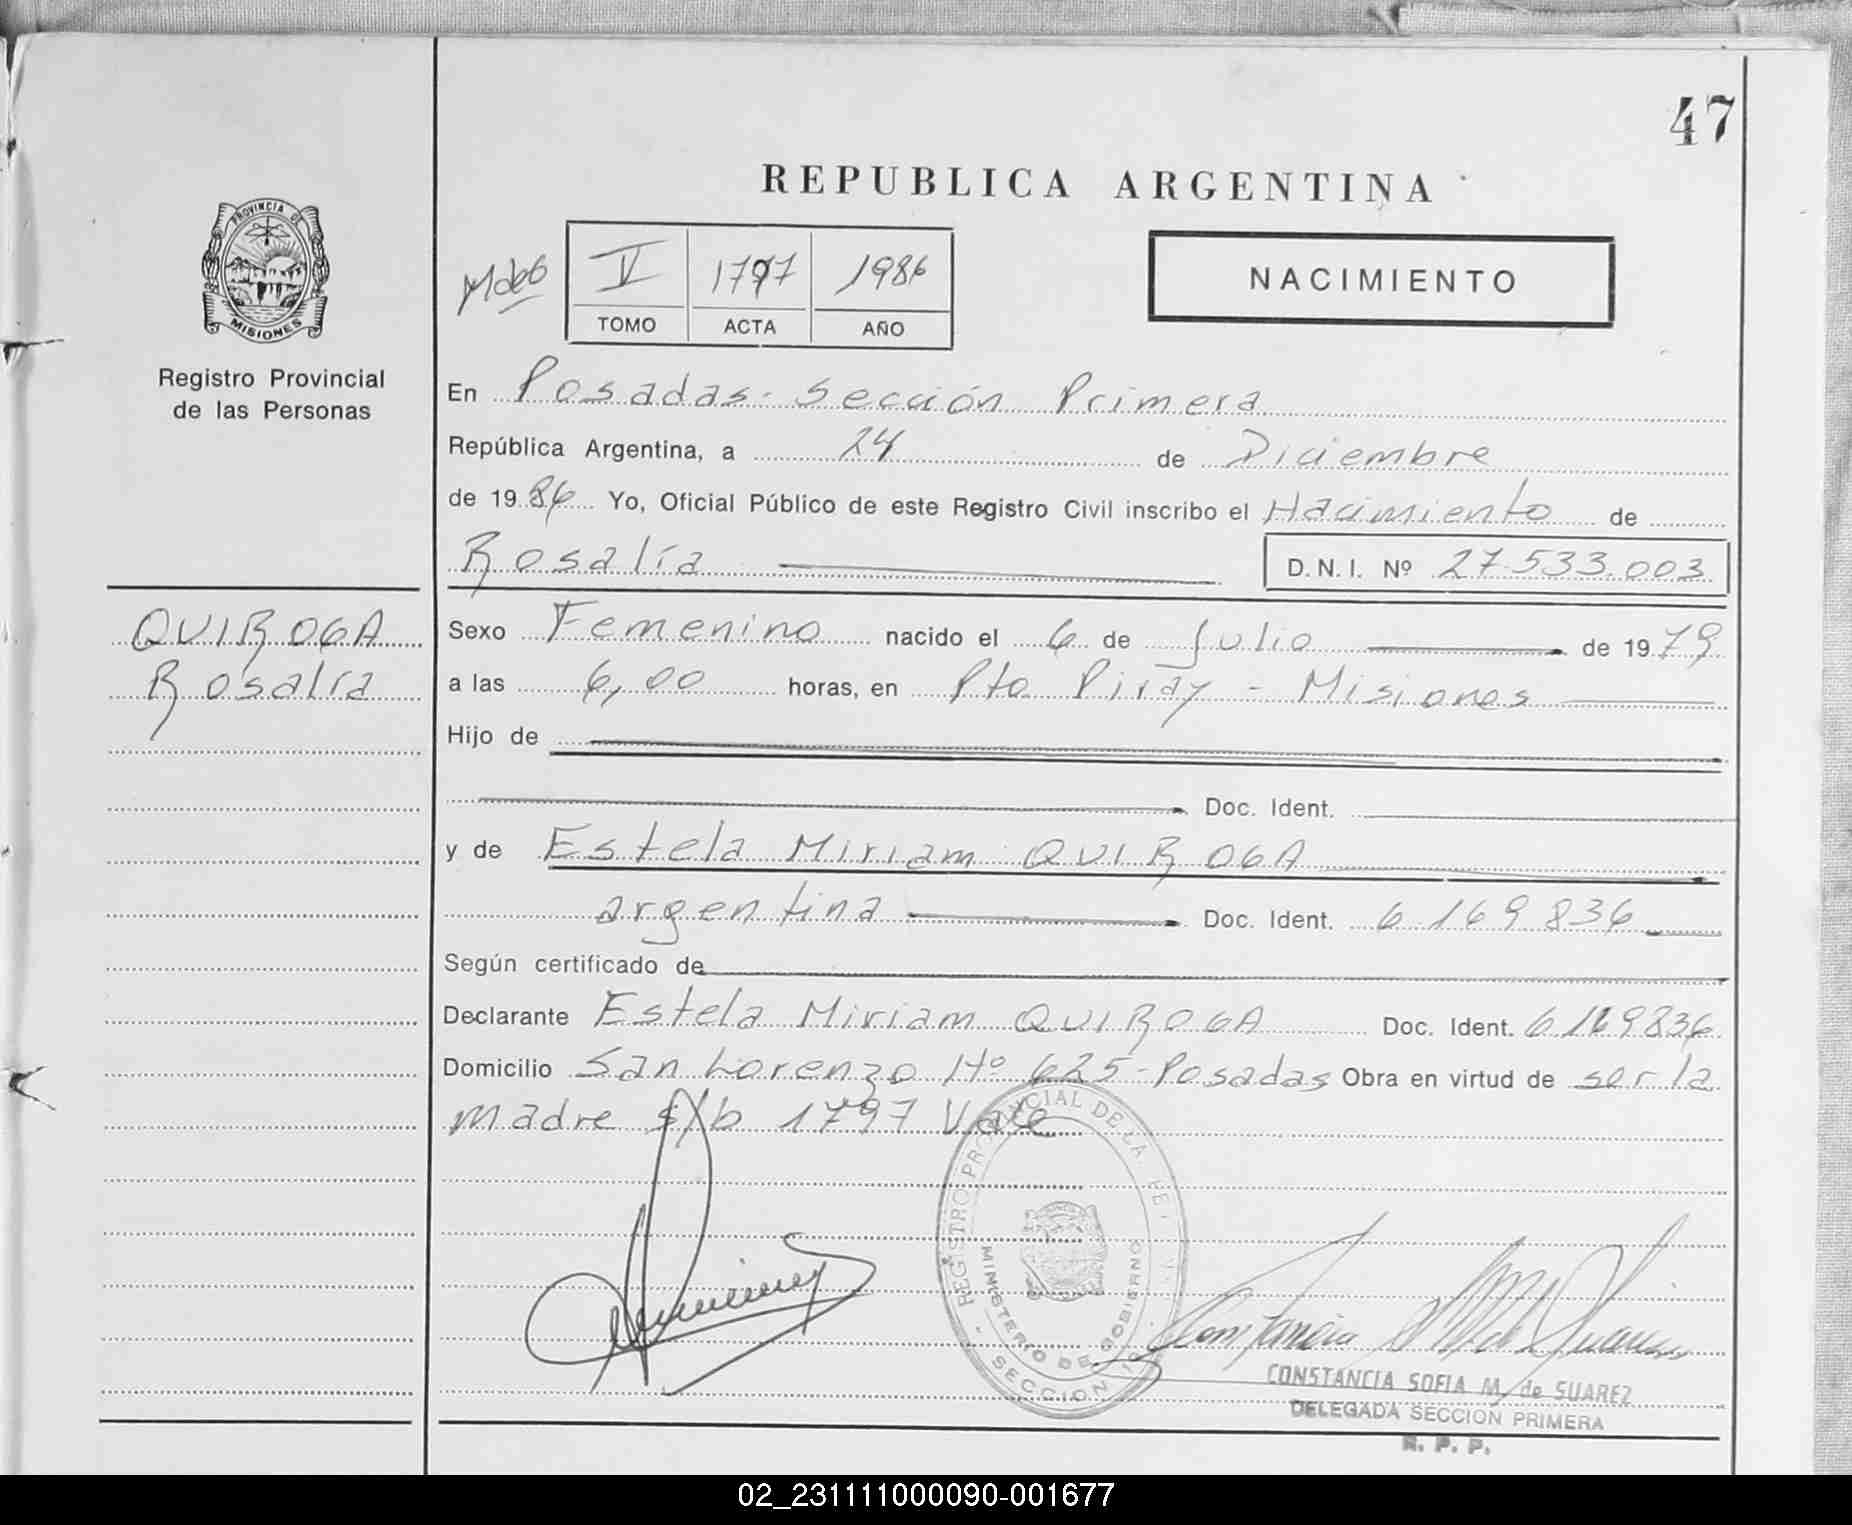 47
REPUBLICA ARGENTINA
PROVINCIA DE
MISIONES
Registro Provincial
de las Personas
V 1797 1986
TOMO ACTA AÑO
NACIMIENTO
En Posadas - Sección Primera
República Argentina, a 24 de Diciembre
de 1986 Yo, Oficial Público de este Registro Civil inscribo el Nacimiento de
Rosalía D.N.I. Nº 27.533.003
QUIROGA
Rosalía
Sexo Femenino nacido el 6 de Julio de 1979
a las 6,00 horas, en Pto Piray - Misiones
Hijo de
Doc. Ident.
y de Estela Miriam QUIROGA
argentina Doc. Ident. 6.169.836
Según certificado de
Declarante Estela Miriam QUIROGA Doc. Ident. 6.169.836
Domicilio San Lorenzo Nº 625 - Posadas Obra en virtud de ser la
madre s/b 1797 Vale
REGISTRO PROVINCIAL DE LA
MINISTERIO DE GOBIERNO
SECCION
CONSTANCIA SOFIA M. de SUAREZ
DELEGADA SECCION PRIMERA
R. P. P.
02_231111000090-001677